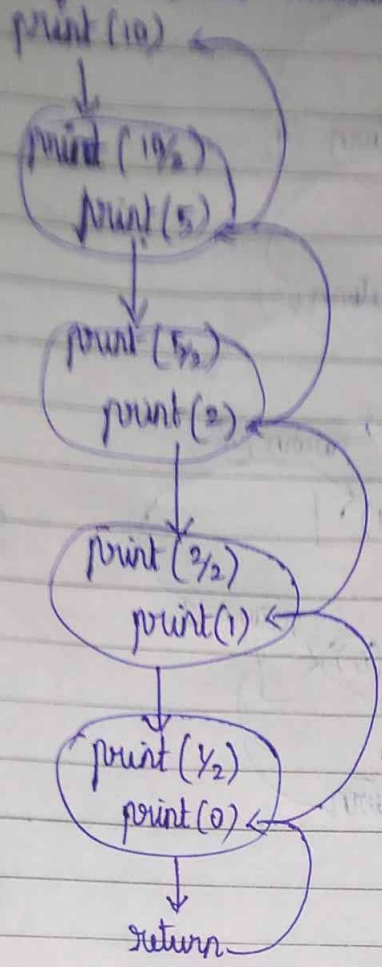 print (10)
print (10/2)
print (5)
print (5/2)
print (2)
print (2/2)
print (1)
print (1/2)
print (0)
return